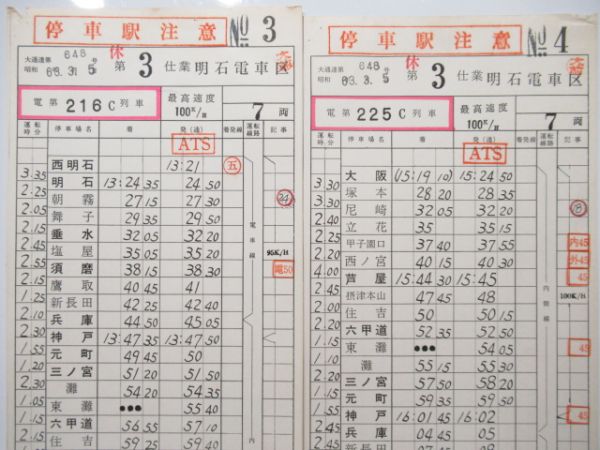 停車駅注意 No 3
大運達第 648
昭和 63.3. 5 休 第 3 仕業 明石電車区
電 第 216 C 列車 最高速度 100K/H 7 両
運転時分 停車場名 着 発(通) 着発線 運転線路 記事
ATS
西明石 13:21 五
3.35 明石 13:24 35 24 50
2.25 朝霧 27 15 27 30 24
2.05 舞子 29 35 29 50
2.15 垂水 32 05 32 20 電車線
2.45 塩屋 35 05 35 20 95K/H
2.55 須磨 38 15 38 30 電50
2.15 鷹取 40 45 41
1.25 新長田 42 25 42 40
2.10 兵庫 44 50 45 05
2.30 神戸 13:47 35 13:47 50
1.55 元町 49 45 50
1.30 三ノ宮 51 20 51 50
2.30 灘 54 20 54 35
1.05 東灘 ••• 55 40
1.15 六甲道 56 55 57 10
住吉 59 25 59 40 内
停車駅注意 No 4
大運達第 648
昭和 63.3. 5 休 第 3 仕業 明石電車区
電 第 225 C 列車 最高速度 100K/H 7 両
運転時分 停車場名 着 発(通) 着発線 運転線路 記事
ATS
大阪 (15:19 10) 15:24 50
3.30 塚本 28 20 28 35
3.30 尼崎 32 05 32 20 18
立花 35 35 15
甲子園口 37 40 37 55 内45
西ノ宮 40 15 40 30 外45
芦屋 15:44 30 15:45 45
摂津本山 47 45 48 内側線 100K/H
住吉 50 50 15
六甲道 52 35 52 50
東灘 ••• 54 05 45
灘 55 15 55 30
三ノ宮 57 50 58 20
元町 59 35 59 50
神戸 16:01 45 16:02 45
兵庫 04 45 05
新長田 07 15